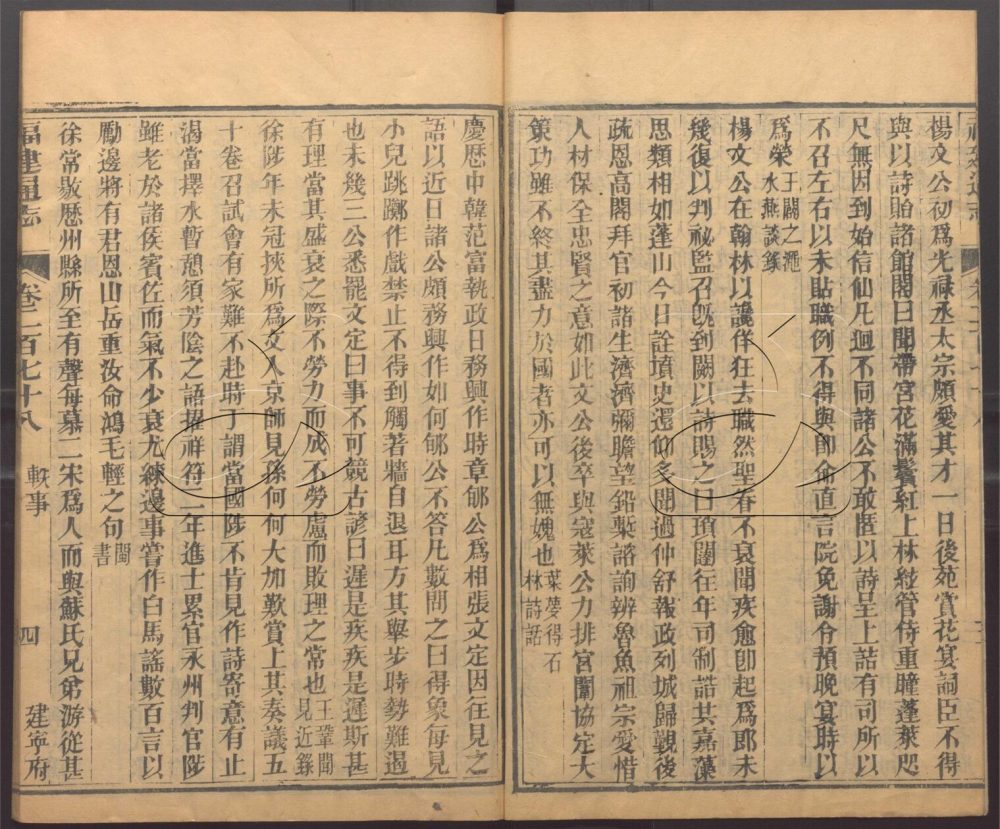 楊文公初為光祿丞太宗頗愛其才一日後苑賞花宴詞臣不得
與以詩貽諸館閣曰聞帶宮花滿鬢紅上林絲管侍重瞳蓬萊咫
尺無因到始信仙凡迥不同諸公不敢匿以詩呈上詰有司所以
不召左右以未貼職例不得與即命直言院免謝令預晚宴時以
為榮王闢之澠水燕談錄
楊文公在翰林以讒佯狂去職然聖眷不衰聞疾愈即起為郎未
幾復以判祕監召既到闕以詩賜之曰頃闢往年司制誥共嘉藻
思類相如蓬山今日詮墳史還仰多聞過仲舒報政列城歸觀後
疏恩高閣拜官初諸生濟濟彌瞻望鉛槧諮詢辨魯魚祖宗愛惜
人材保全忠賢之意如此文公後卒與寇萊公力排宮闈協定大
策功雖不終其盡力於國者亦可以無媿也葉夢得石林詩話
慶歷中韓范富執政日務興作時章郇公為相張文定因往見之
語以近日諸公頗務興作如何郇公不答凡數問之曰得象每見
小兒跳躑作戲禁止不得到觸著牆自退耳方其舉步時勢難遏
也未幾三公悉罷文定曰事不可競古諺曰遲是疾疾是遲斯甚
有理當其盛衰之際不勞力而成不勞慮而敗理之常也王鞏聞見近錄
徐陟年未冠挾所為文入京師見孫何何大加歎賞上其奏議五
十卷召試會有家難不赴時丁謂當國陟不肯見作詩寄意有止
渴當擇水暫憩須芳陰之語擢祥符二年進士累官永州判官陟
雖老於諸侯賓佐而氣不少衰尤練邊事嘗作白馬謠數百言以
勵邊將有君恩山岳重汝命鴻毛輕之句閩書
徐常敭歷州縣所至有聲每慕二宋為人而與蘇氏兄弟游從甚
福建通志 卷二百七十八 軼事 四 建寧府